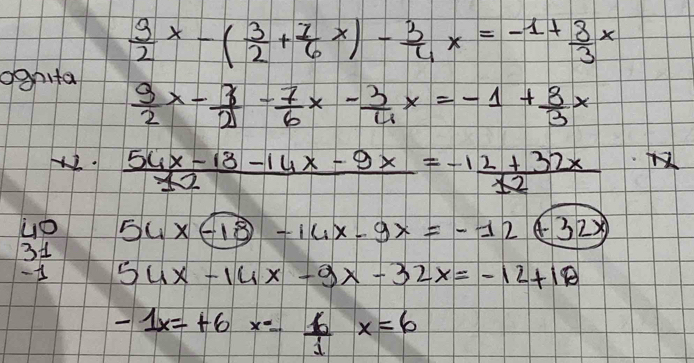 9/2 x - (3/2 + 7/6 x) - 3/4 x = -1 + 8/3 x
ognita
9/2 x - 3/2 - 7/6 x - 3/4 x = -1 + 8/3 x
12 · (54x - 18 - 14x - 9x)/12 = (-12 + 32x)/12 · 12
40 54x -18 - 14x - 9x = -12 + 32x
31
-1 54x - 14x - 9x - 32x = -12 + 18
-1x = +6 x = 6/1 x = 6